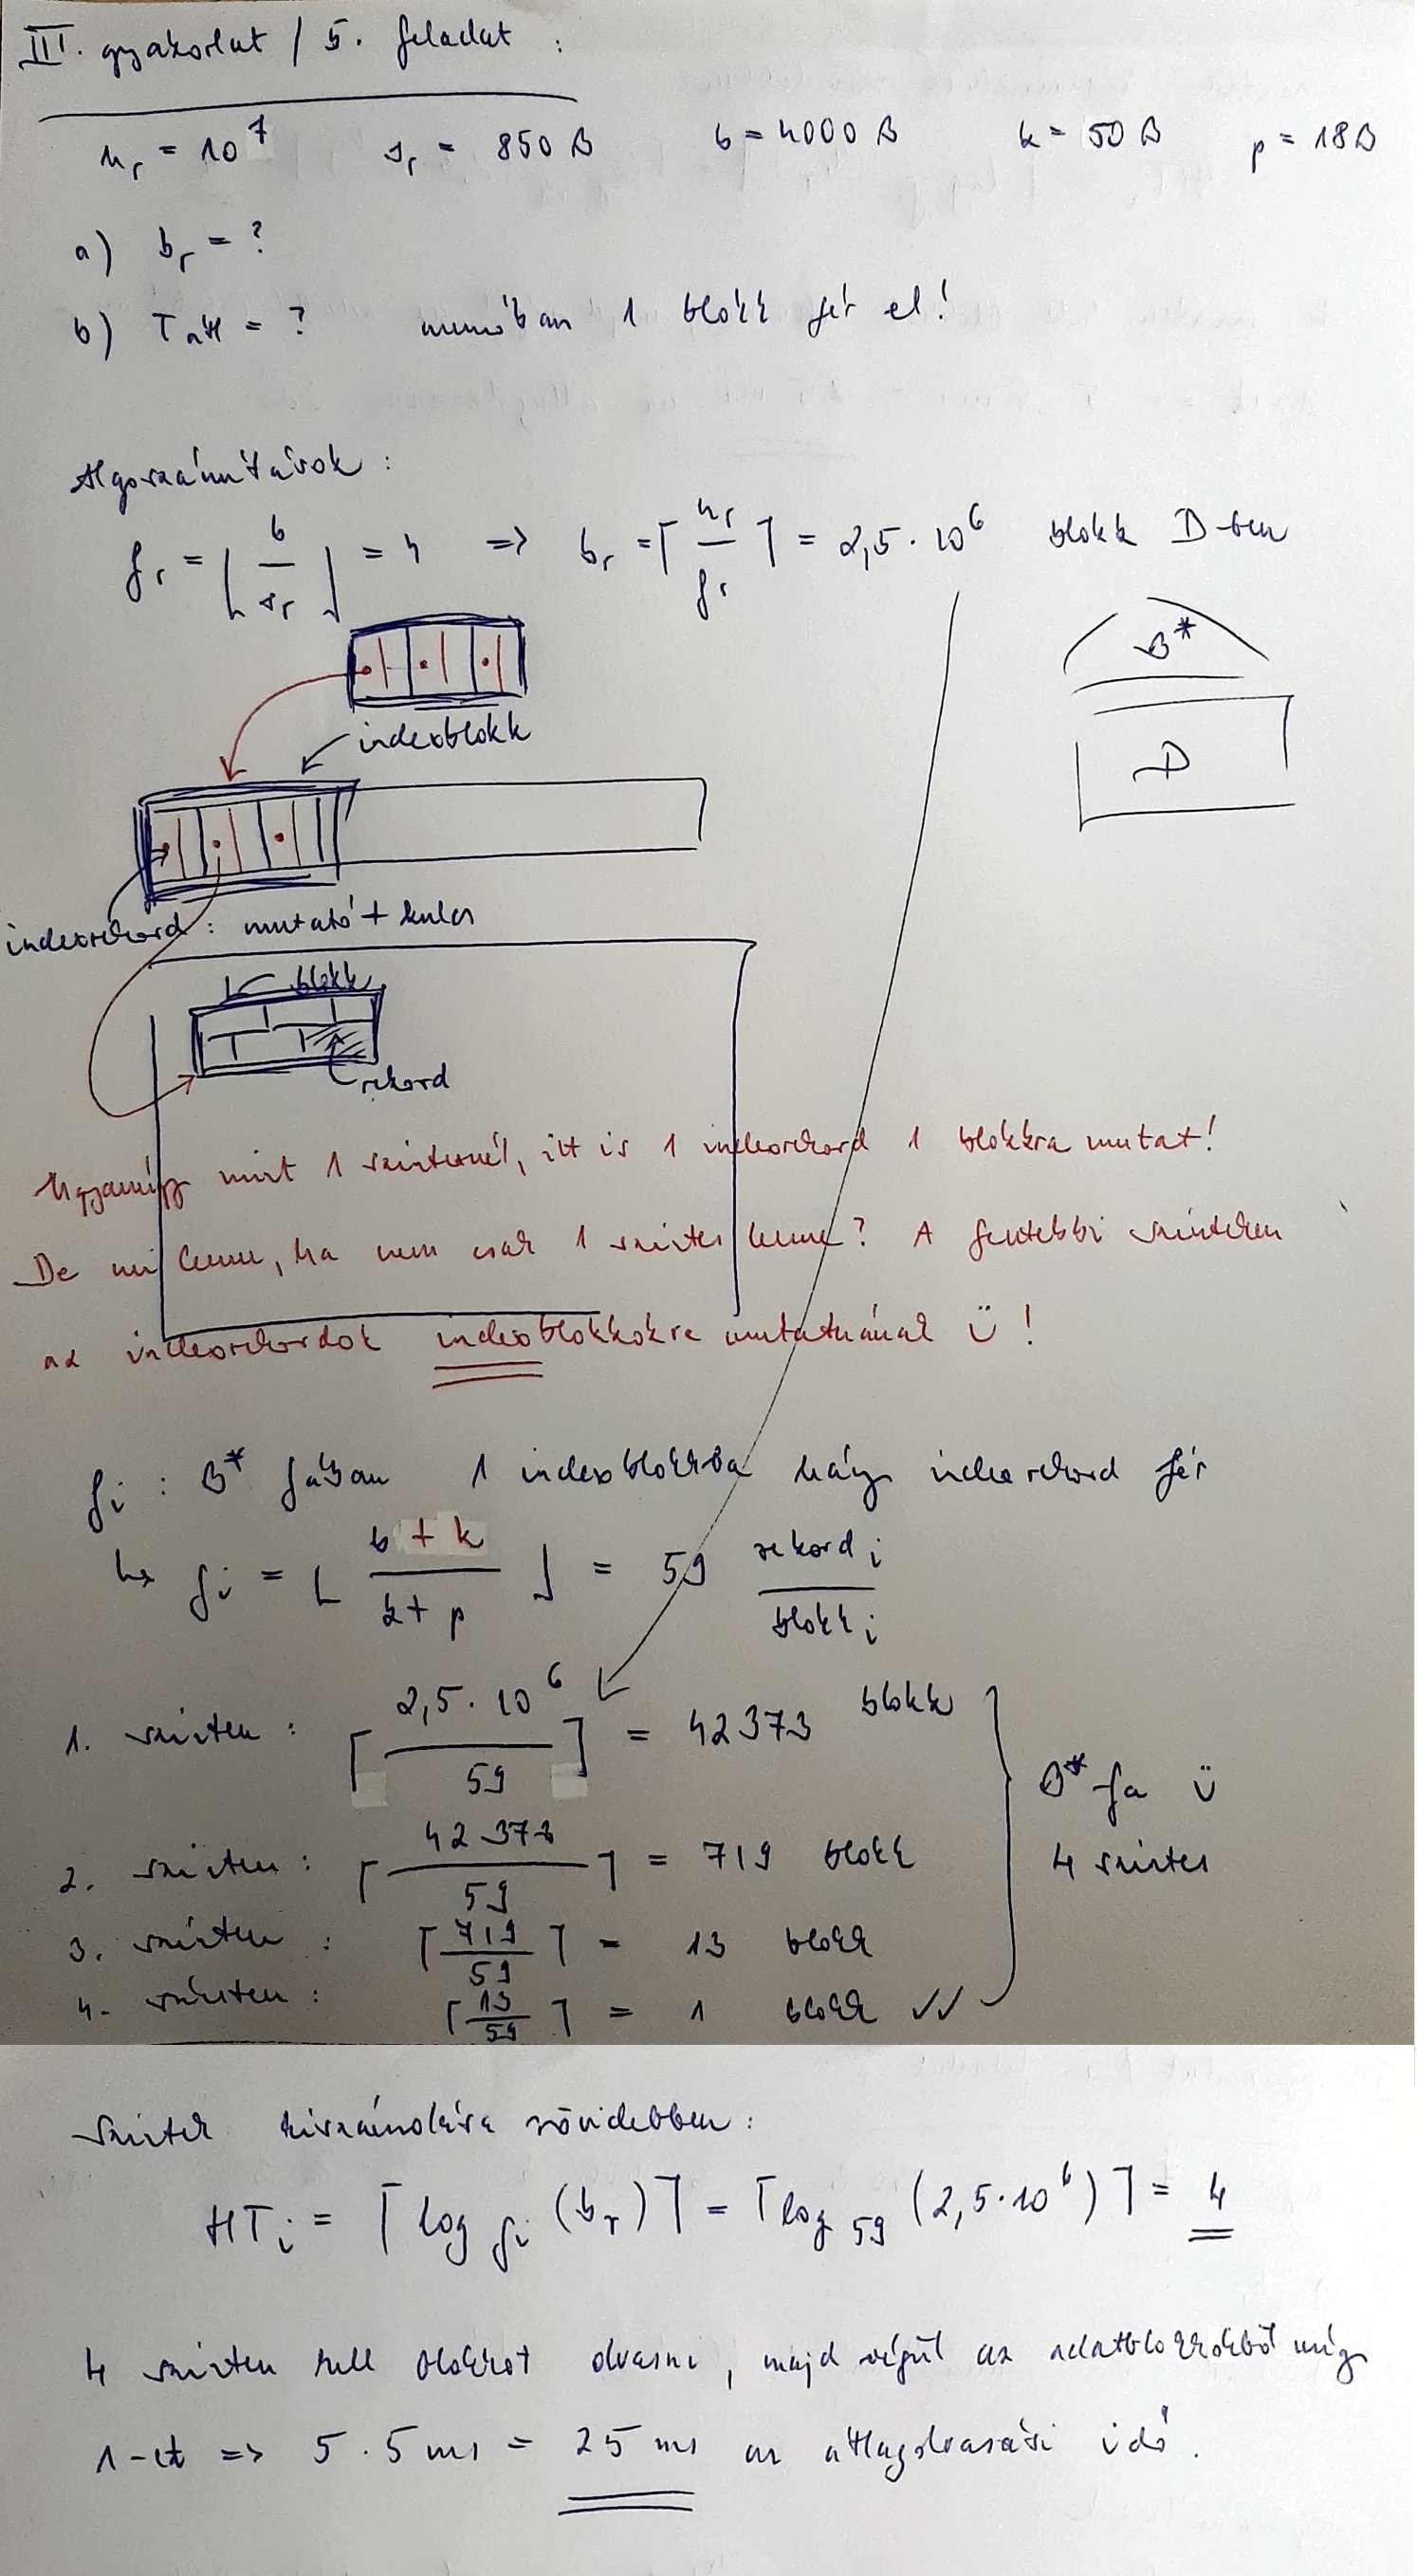 III. gyakorlat / 5. feladat :
n_r = 10^7 s_r = 850 B b = 4000 B k = 50 B p = 18 B
a) b_r = ?
b) T_átl = ? memóban 1 blokk fér el!
Algoszámítások :
f_r = ⌊ b / s_r ⌋ = 4 => b_r = ⌈ n_r / f_r ⌉ = 2,5 · 10^6 blokk D-ben
B*
D
indexblokk
indexrekord : mutató + kulcs
blokk
rekord
Ugyanúgy mint 1 szintesnél, itt is 1 indexrekord 1 blokkra mutat!
De mi lenne, ha nem csak 1 szintes lenne? A fentebbi szinteken
az indexrekordok indexblokkokra mutatnának ü !
f_i : B* fában 1 indexblokkba hány indexrekord fér
↳ f_i = ⌊ b + k / k + p ⌋ = 59 rekord_i / blokk_i
1. szinten : ⌈ 2,5 · 10^6 / 59 ⌉ = 42373 blokk
B*-fa ü
2. szinten : ⌈ 42373 / 59 ⌉ = 719 blokk
4 szintes
3. szinten : ⌈ 719 / 59 ⌉ = 13 blokk
4. szinten : ⌈ 13 / 59 ⌉ = 1 blokk ✓✓
Szintek kiszámolása rövidebben :
HT_i = ⌈ log_f_i (b_r) ⌉ = ⌈ log_59 (2,5 · 10^6) ⌉ = 4
4 szinten kell blokkot olvasni, majd végül az adatblokkokból még
1-et => 5 · 5 ms = 25 ms az átlagolvasási idő.